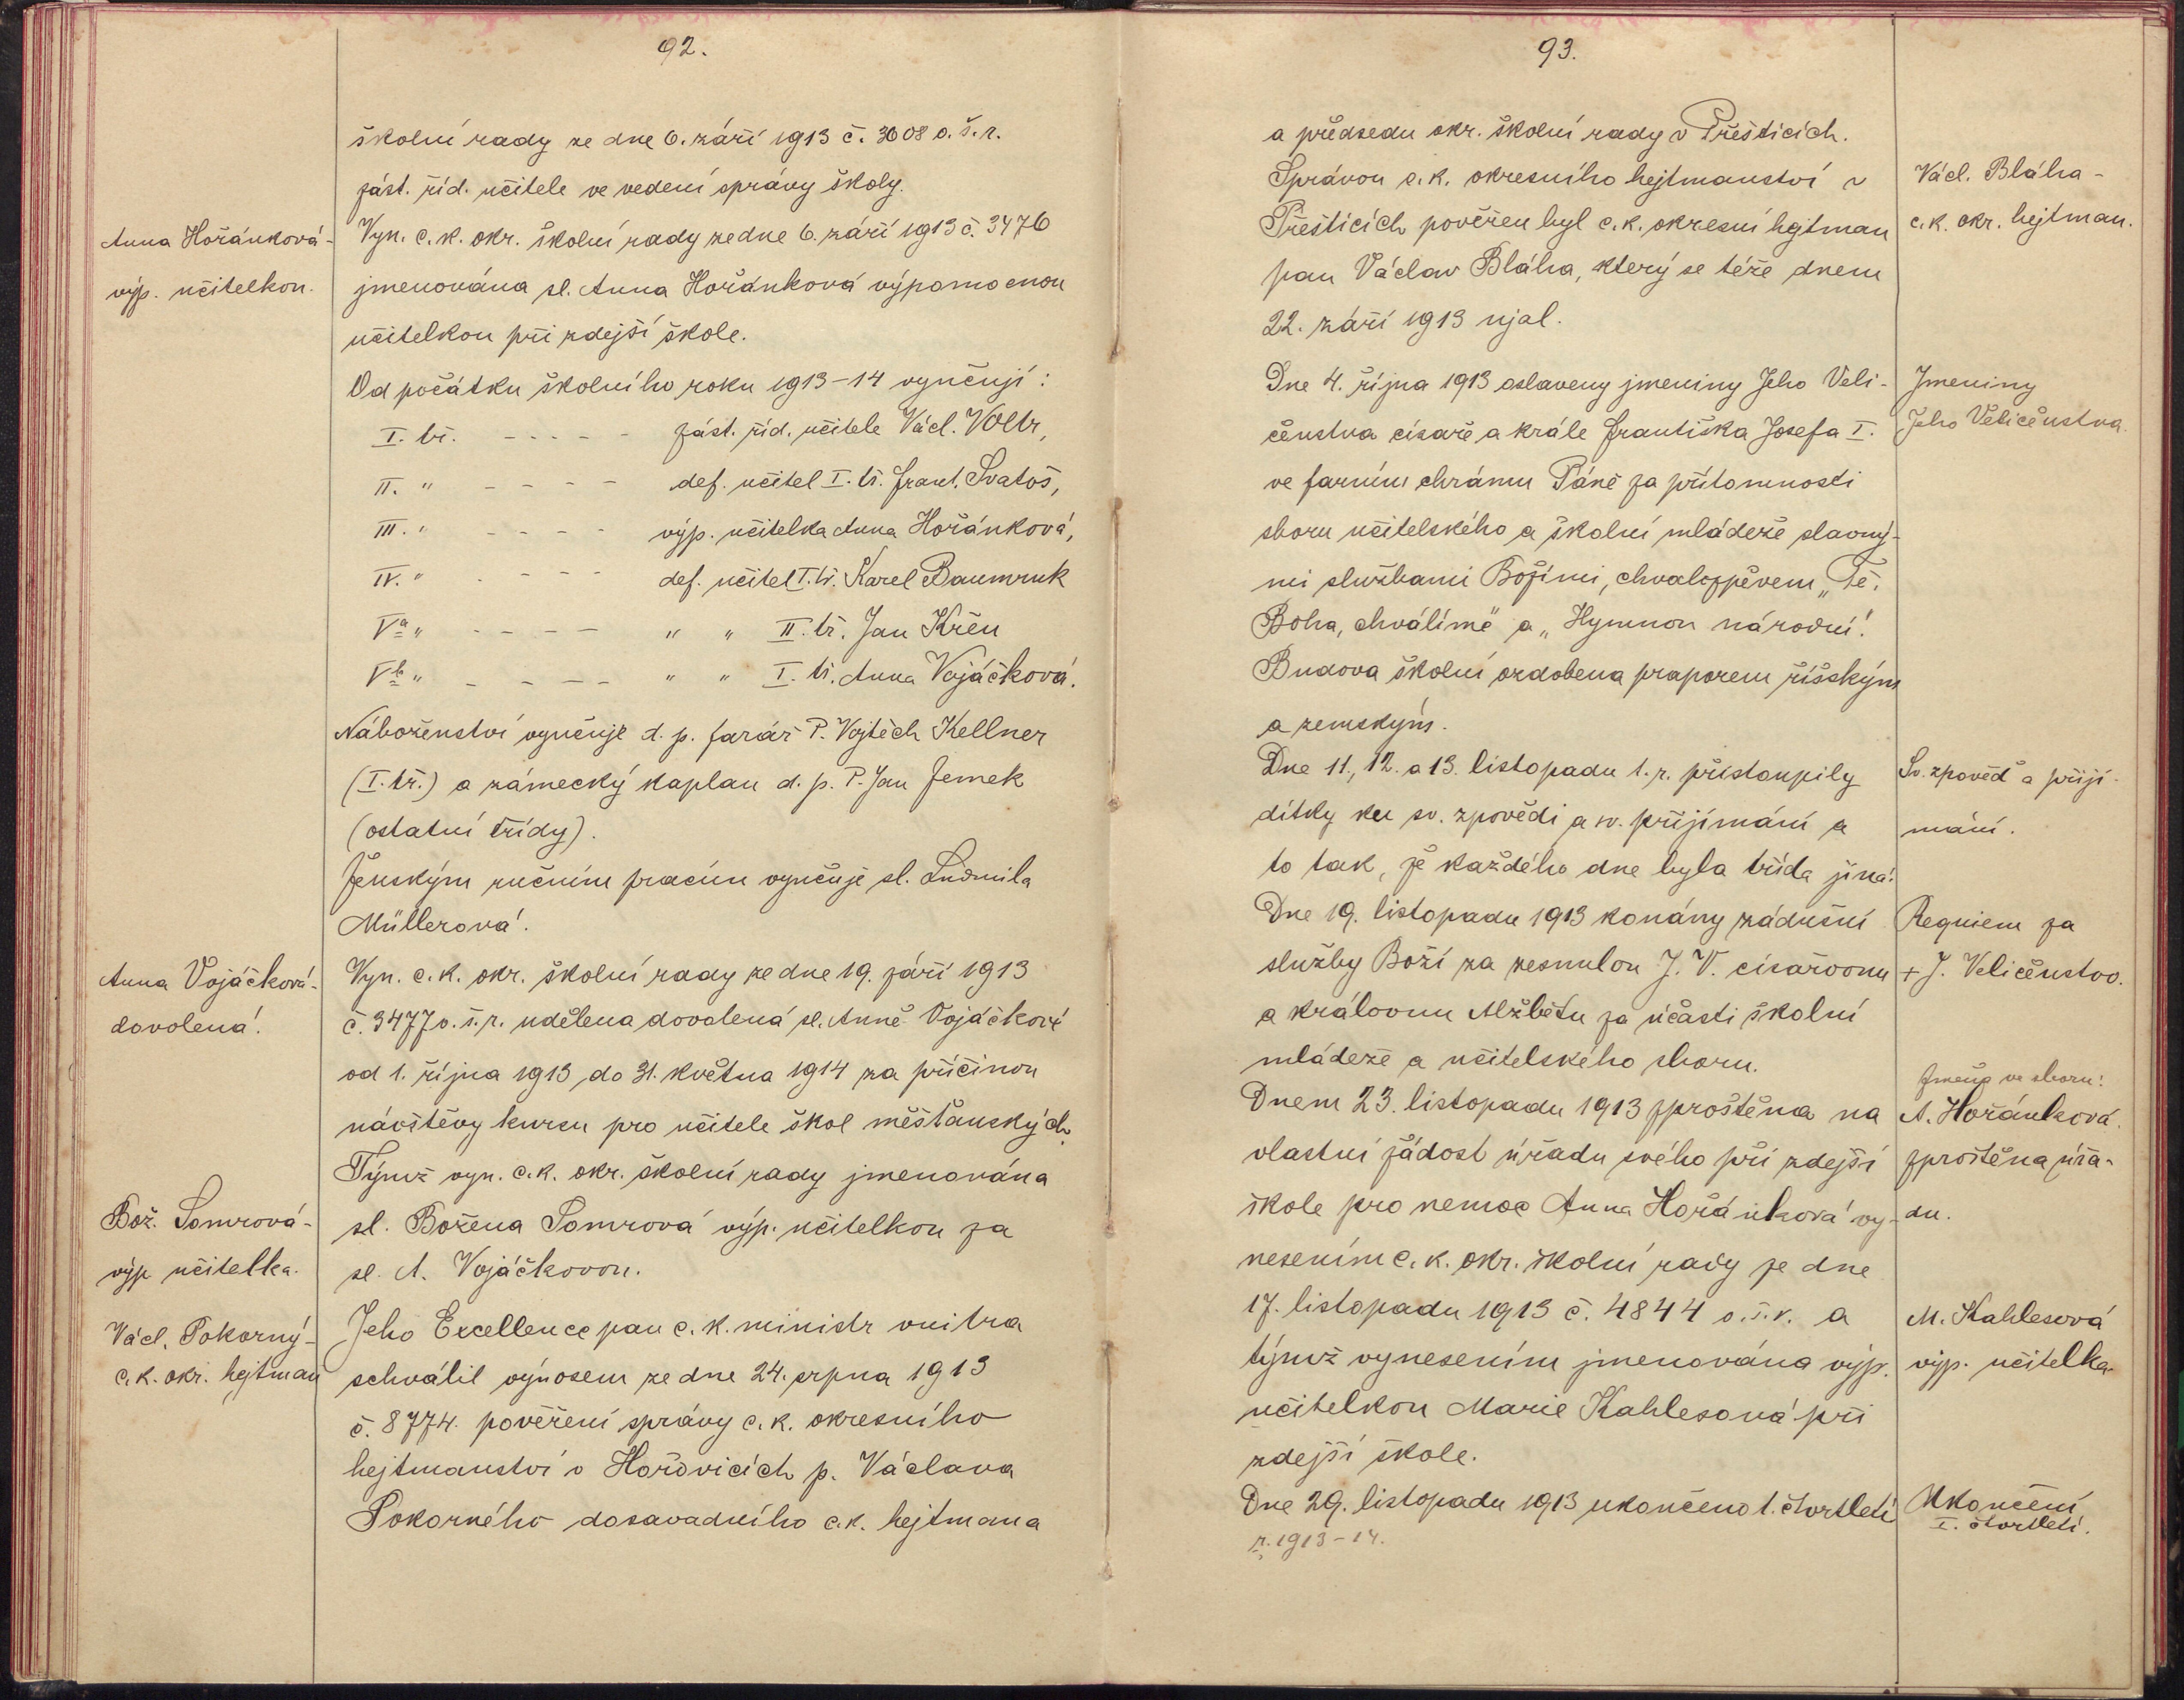 92.
školní rady ze dne 6. září 1913 č. 3608 o. š. r.
zást. říd. učitele ve vedení správy školy.
Anna Hořánková-
výp. učitelkou.
Vyn. c. k. okr. školní rady ze dne 6. září 1913 č. 3476
jmenována sl. Anna Hořánková výpomocnou
učitelkou při zdejší škole.
Od počátku školního roku 1913-14 vyučují:
I. tř. - - - - - zást. říd. učitele Václ. Voltr,
II. " - - - - def. učitel I. tř. Frant. Svatoš,
III. " - - - - výp. učitelka Anna Hořánková,
IV. " - - - - def. učitel I. tř. Karel Baumruk
Va " - - - - " " II. tř. Jan Křen
Vb " - - - - " " I. tř. Anna Vojáčková.
Náboženství vyučuje d. p. farář P. Vojtěch Kellner
(I. tř.) a zámecký kaplan d. p. P. Jan Zemek
(ostatní třídy).
Ženským ručním pracím vyučuje sl. Ludmila
Müllerová.
Anna Vojáčková-
dovolená.
Vyn. c. k. okr. školní rady ze dne 19. září 1913
č. 3477 o. š. r. udělena dovolená sl. Anně Vojáčkové
od 1. října 1913 do 31. května 1914 za příčinou
návštěvy kursu pro učitele škol měšťanských.
Týmž vyn. c. k. okr. školní rady jmenována
Bož. Somrová-
výp učitelka.
sl. Božena Somrová výp. učitelkou za
sl. A. Vojáčkovou.
Václ. Pokorný-
c. k. okr. hejtman
Jeho Excellence pan c. k. ministr vnitra
schválil výnosem ze dne 24. srpna 1913
č. 8774. pověření správy c. k. okresního
hejtmanství v Hořovicích p. Václava
Pokorného dosavadního c. k. hejtmana
93.
a předsedu okr. školní rady v Přešticích.
Správou c. k. okresního hejtmanství v
Přešticích pověřen byl c. k. okresní hejtman
pan Václav Bláha, který se téže dnem
22. září 1913 ujal.
Václ. Bláha-
c. k. okr. hejtman.
Dne 4. října 1913 oslaveny jmeniny Jeho Veli-
čenstva císaře a krále Františka Josefa I.
ve farním chrámu Páně za přítomnosti
sboru učitelského a školní mládeže slavný-
mi službami Božími, chvalozpěvem „Tě,
Boha, chválíme" a „Hymnou národní."
Budova školní ozdobena praporem říšským
a zemským.
Jmeniny
Jeho Veličenstva.
Dne 11., 12. a 13. listopadu t. r. přistoupily
dítky ku sv. zpovědi a sv. přijímání a
to tak, že každého dne byla třída jiná.
Sv. zpověď a přijí-
mání.
Dne 19. listopadu 1913 konány zádušní
služby Boží za zesnulou J. V. císařovnu
a královnu Alžbětu za účasti školní
mládeže a učitelského sboru.
Requiem za
+ J. Veličenstvo.
Dnem 23. listopadu 1913 zproštěna na
vlastní žádost úřadu svého při zdejší
škole pro nemoc Anna Hořánková vy-
nesením c. k. okr. školní rady ze dne
17. listopadu 1913 č. 4844 o. š. r. a
týmž vynesením jmenována výp.
učitelkou Marie Kahlesová při
zdejší škole.
Změna ve sboru:
A. Hořánková
zproštěna úřa-
du.
M. Kahlesová
výp. učitelka
Dne 29. listopadu 1913 ukončeno 1. čtvrtletí
r. 1913-14.
Ukončení
I. čtvrtletí.